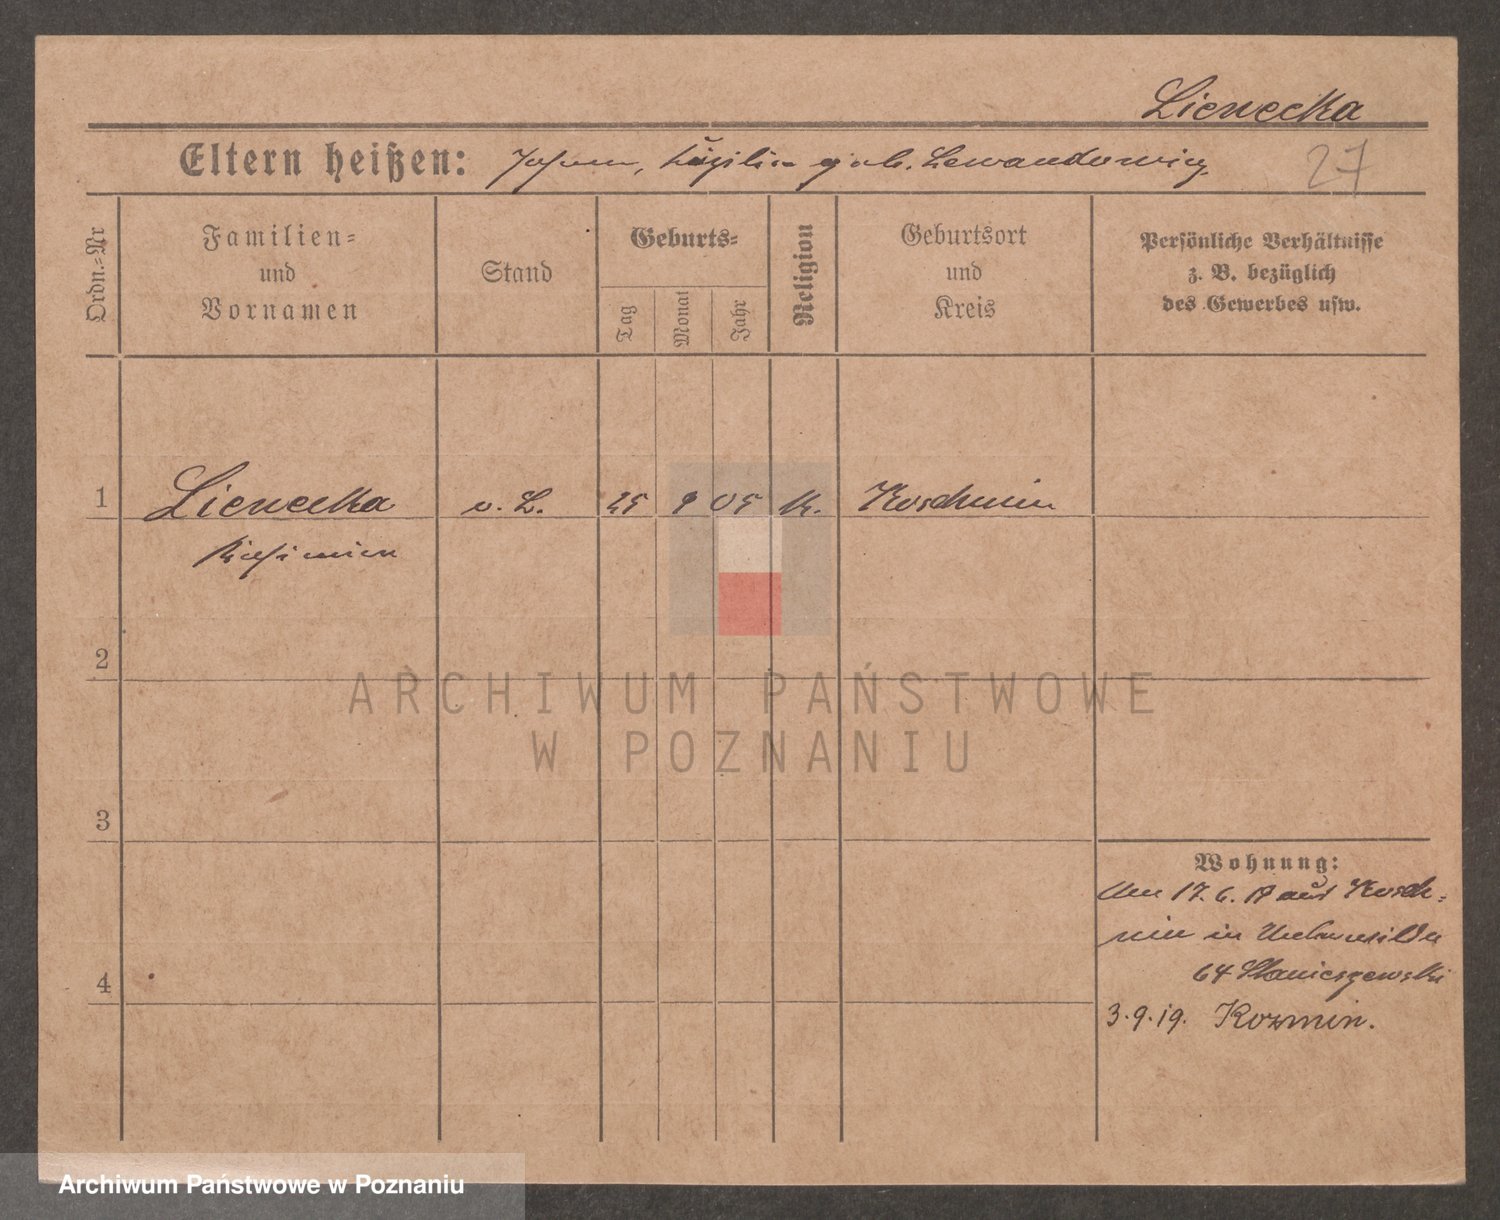 Licnecka
Eltern heißen: Johann, Luzilia geb. Lewandowicz.
27
Ordn.-Nr
Familien-
und
Vornamen
Stand
Geburts-
Tag
Monat
Jahr
Religion
Geburtsort
und
Kreis
Persönliche Verhältnisse
z. B. bezüglich
des Gewerbes usw.
1 Licnecka o. L. 25 9 05 k. Koschmin
2
3
4
Wohnung:
Am 17. 6. 18 aus Kosch-
min in Unterwilda
64 Staniszewski
3.9.19. Kozmin.
ARCHIWUM PAŃSTWOWE
W POZNANIU
Archiwum Państwowe w Poznaniu